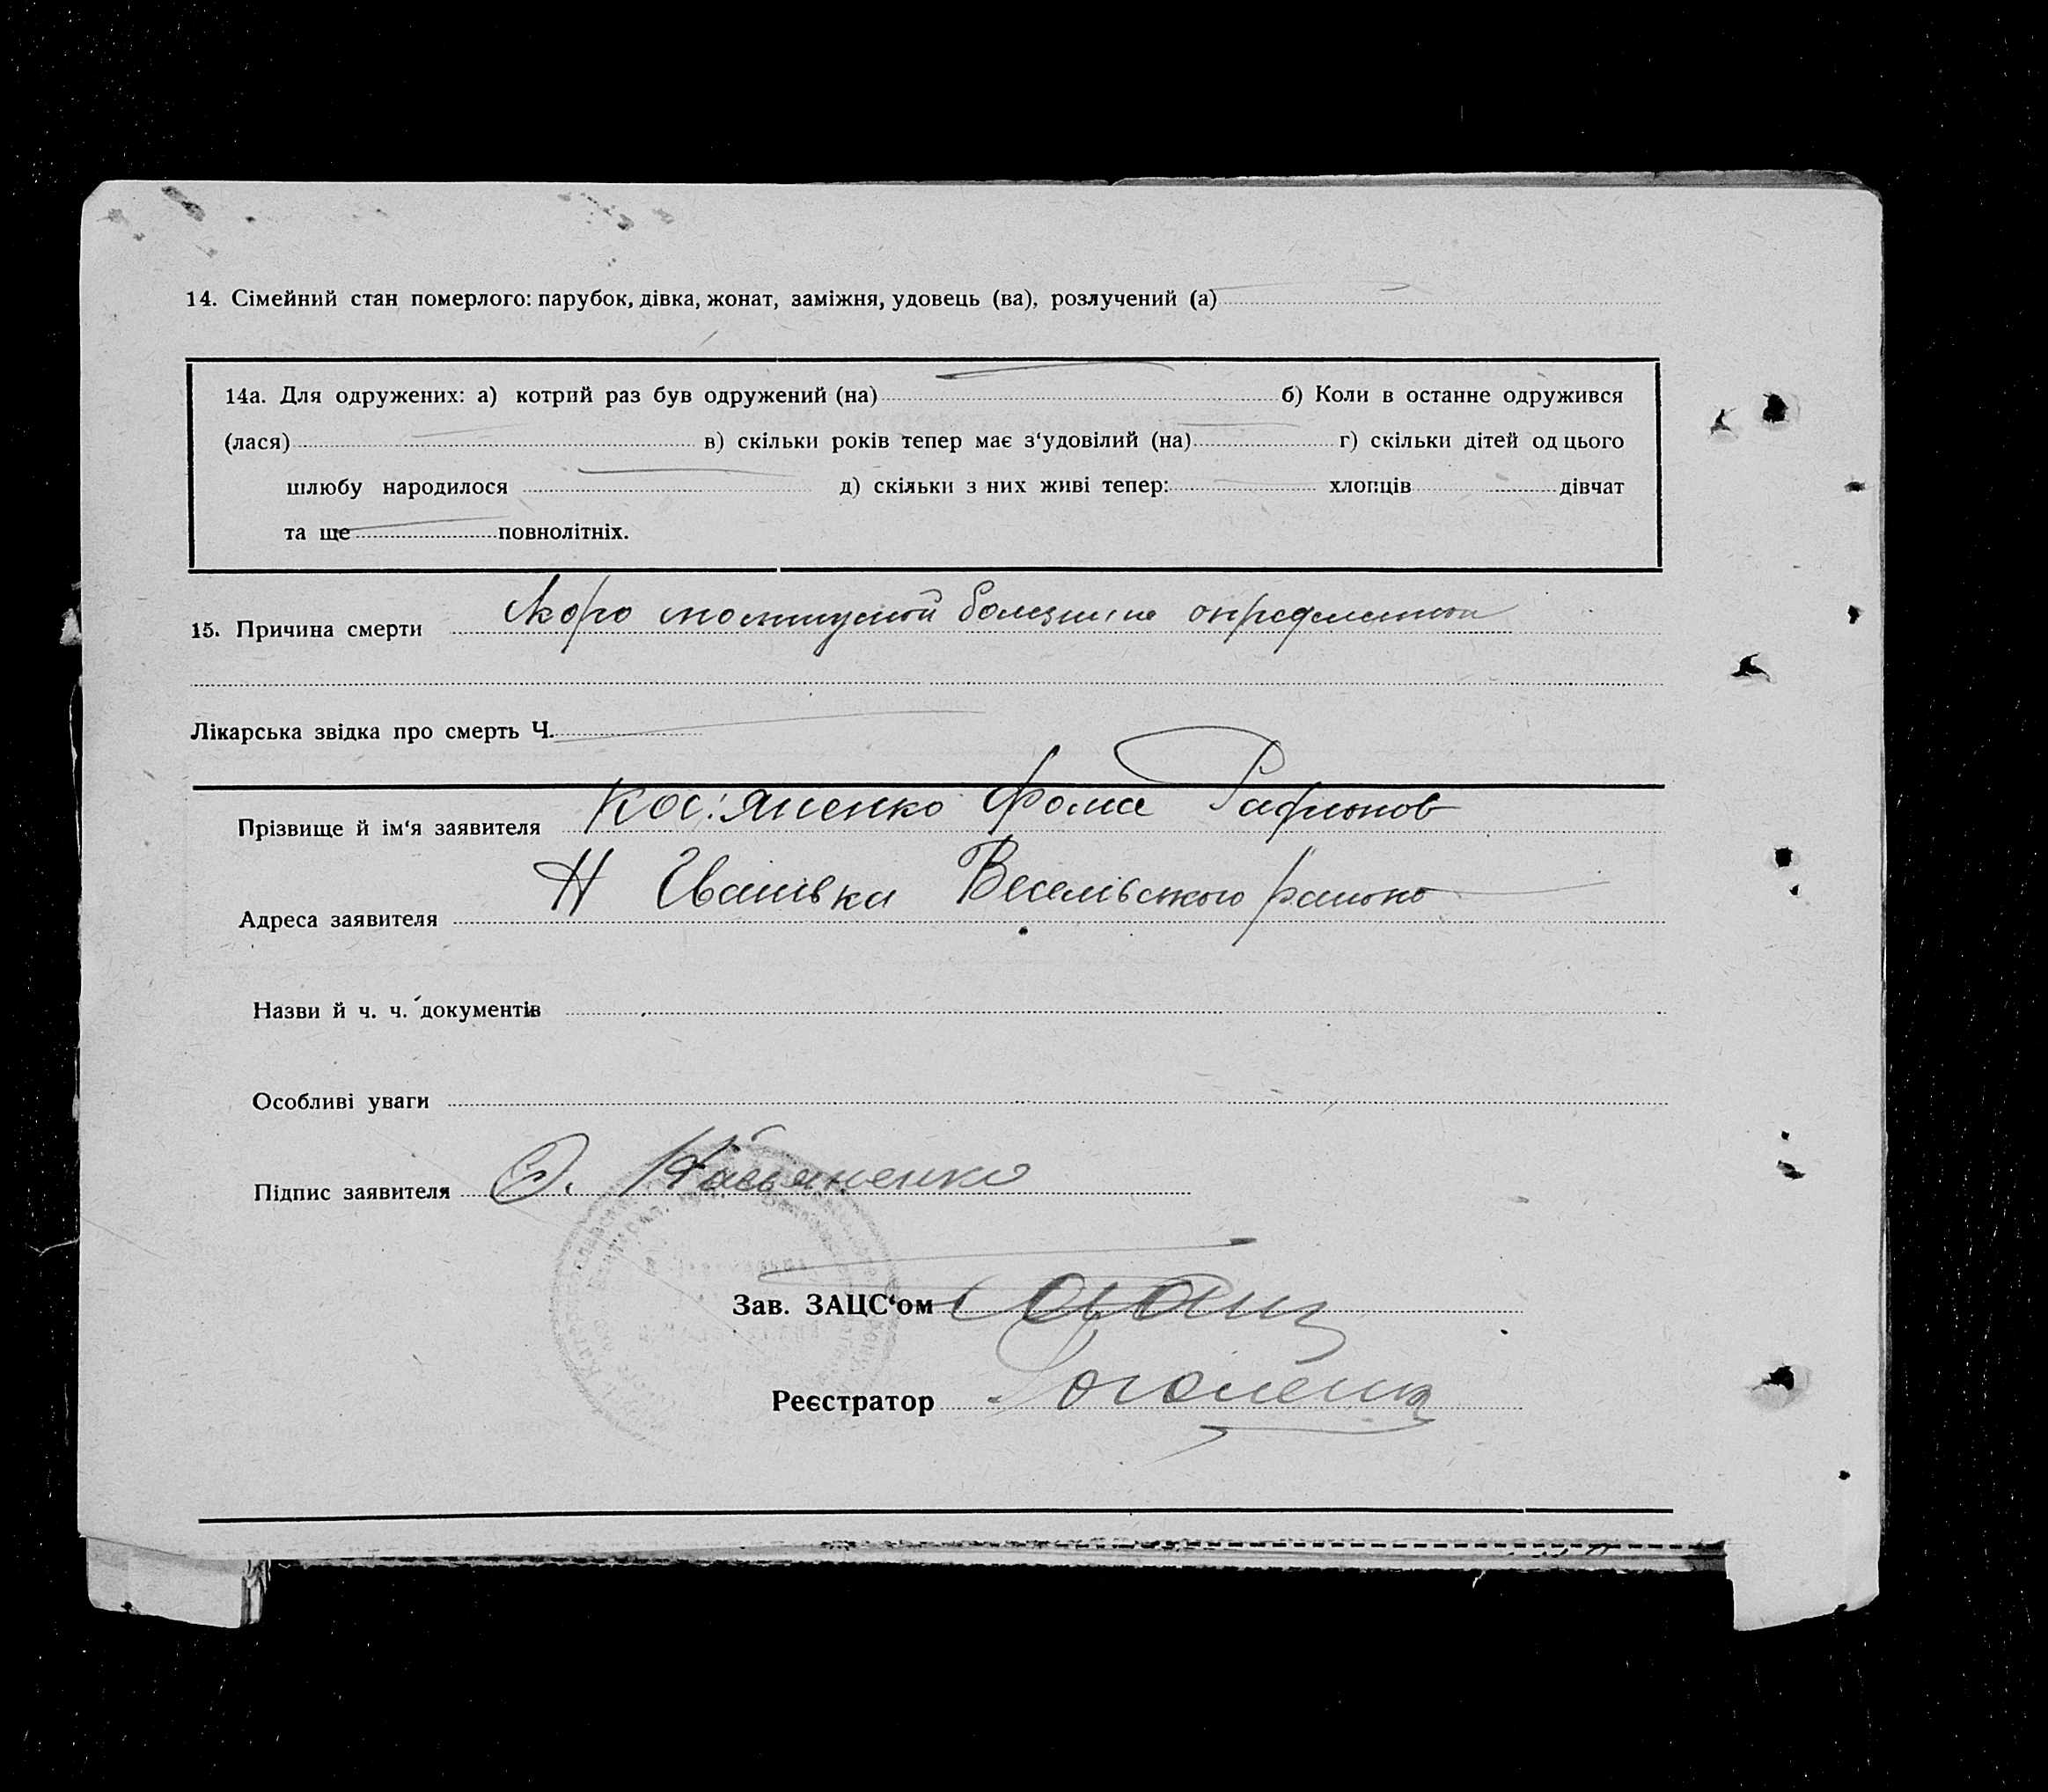 14. Сімейний стан померлого: парубок, дівка, жонат, заміжня, удовець (ва), розлучений (а)
14а. Для одружених: а) котрий раз був одружений (на) б) Коли в останне одружився
(лася) в) скільки років тепер має з‘удовілий (на) г) скільки дітей од цього
шлюбу народилося д) скільки з них живі тепер: хлопців дівчат
та ще повнолітніх.
15. Причина смерти Скоро болезни не
Лікарська звідка про смерть Ч.
Прізвище й ім‘я заявителя Фома
Адреса заявителя Н Іванівка Веселівського району
Назви й ч. ч. документів
Особливі уваги
Підпис заявителя Ф. Касьяненко
Зав. ЗАЦС‘ом
Реєстратор